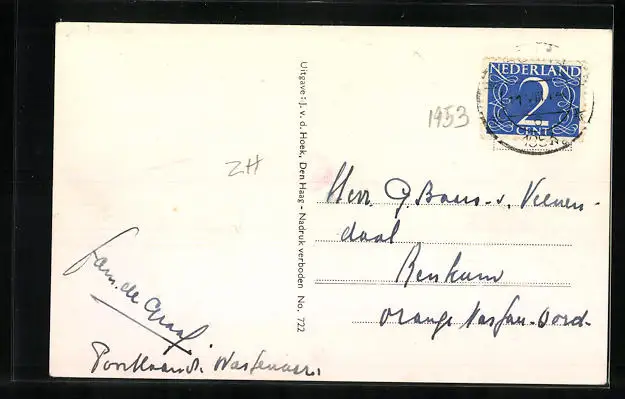 NEDERLAND
2
CENT
1953
ZH
Uitgave: J. v. d. Hoek, Den Haag - Nadruk verboden No. 722
Herr. G. v. Veenen-
daal
Renkum
Oranje Nassau-Oord.
Fam. de Graaf
Wassenaar.